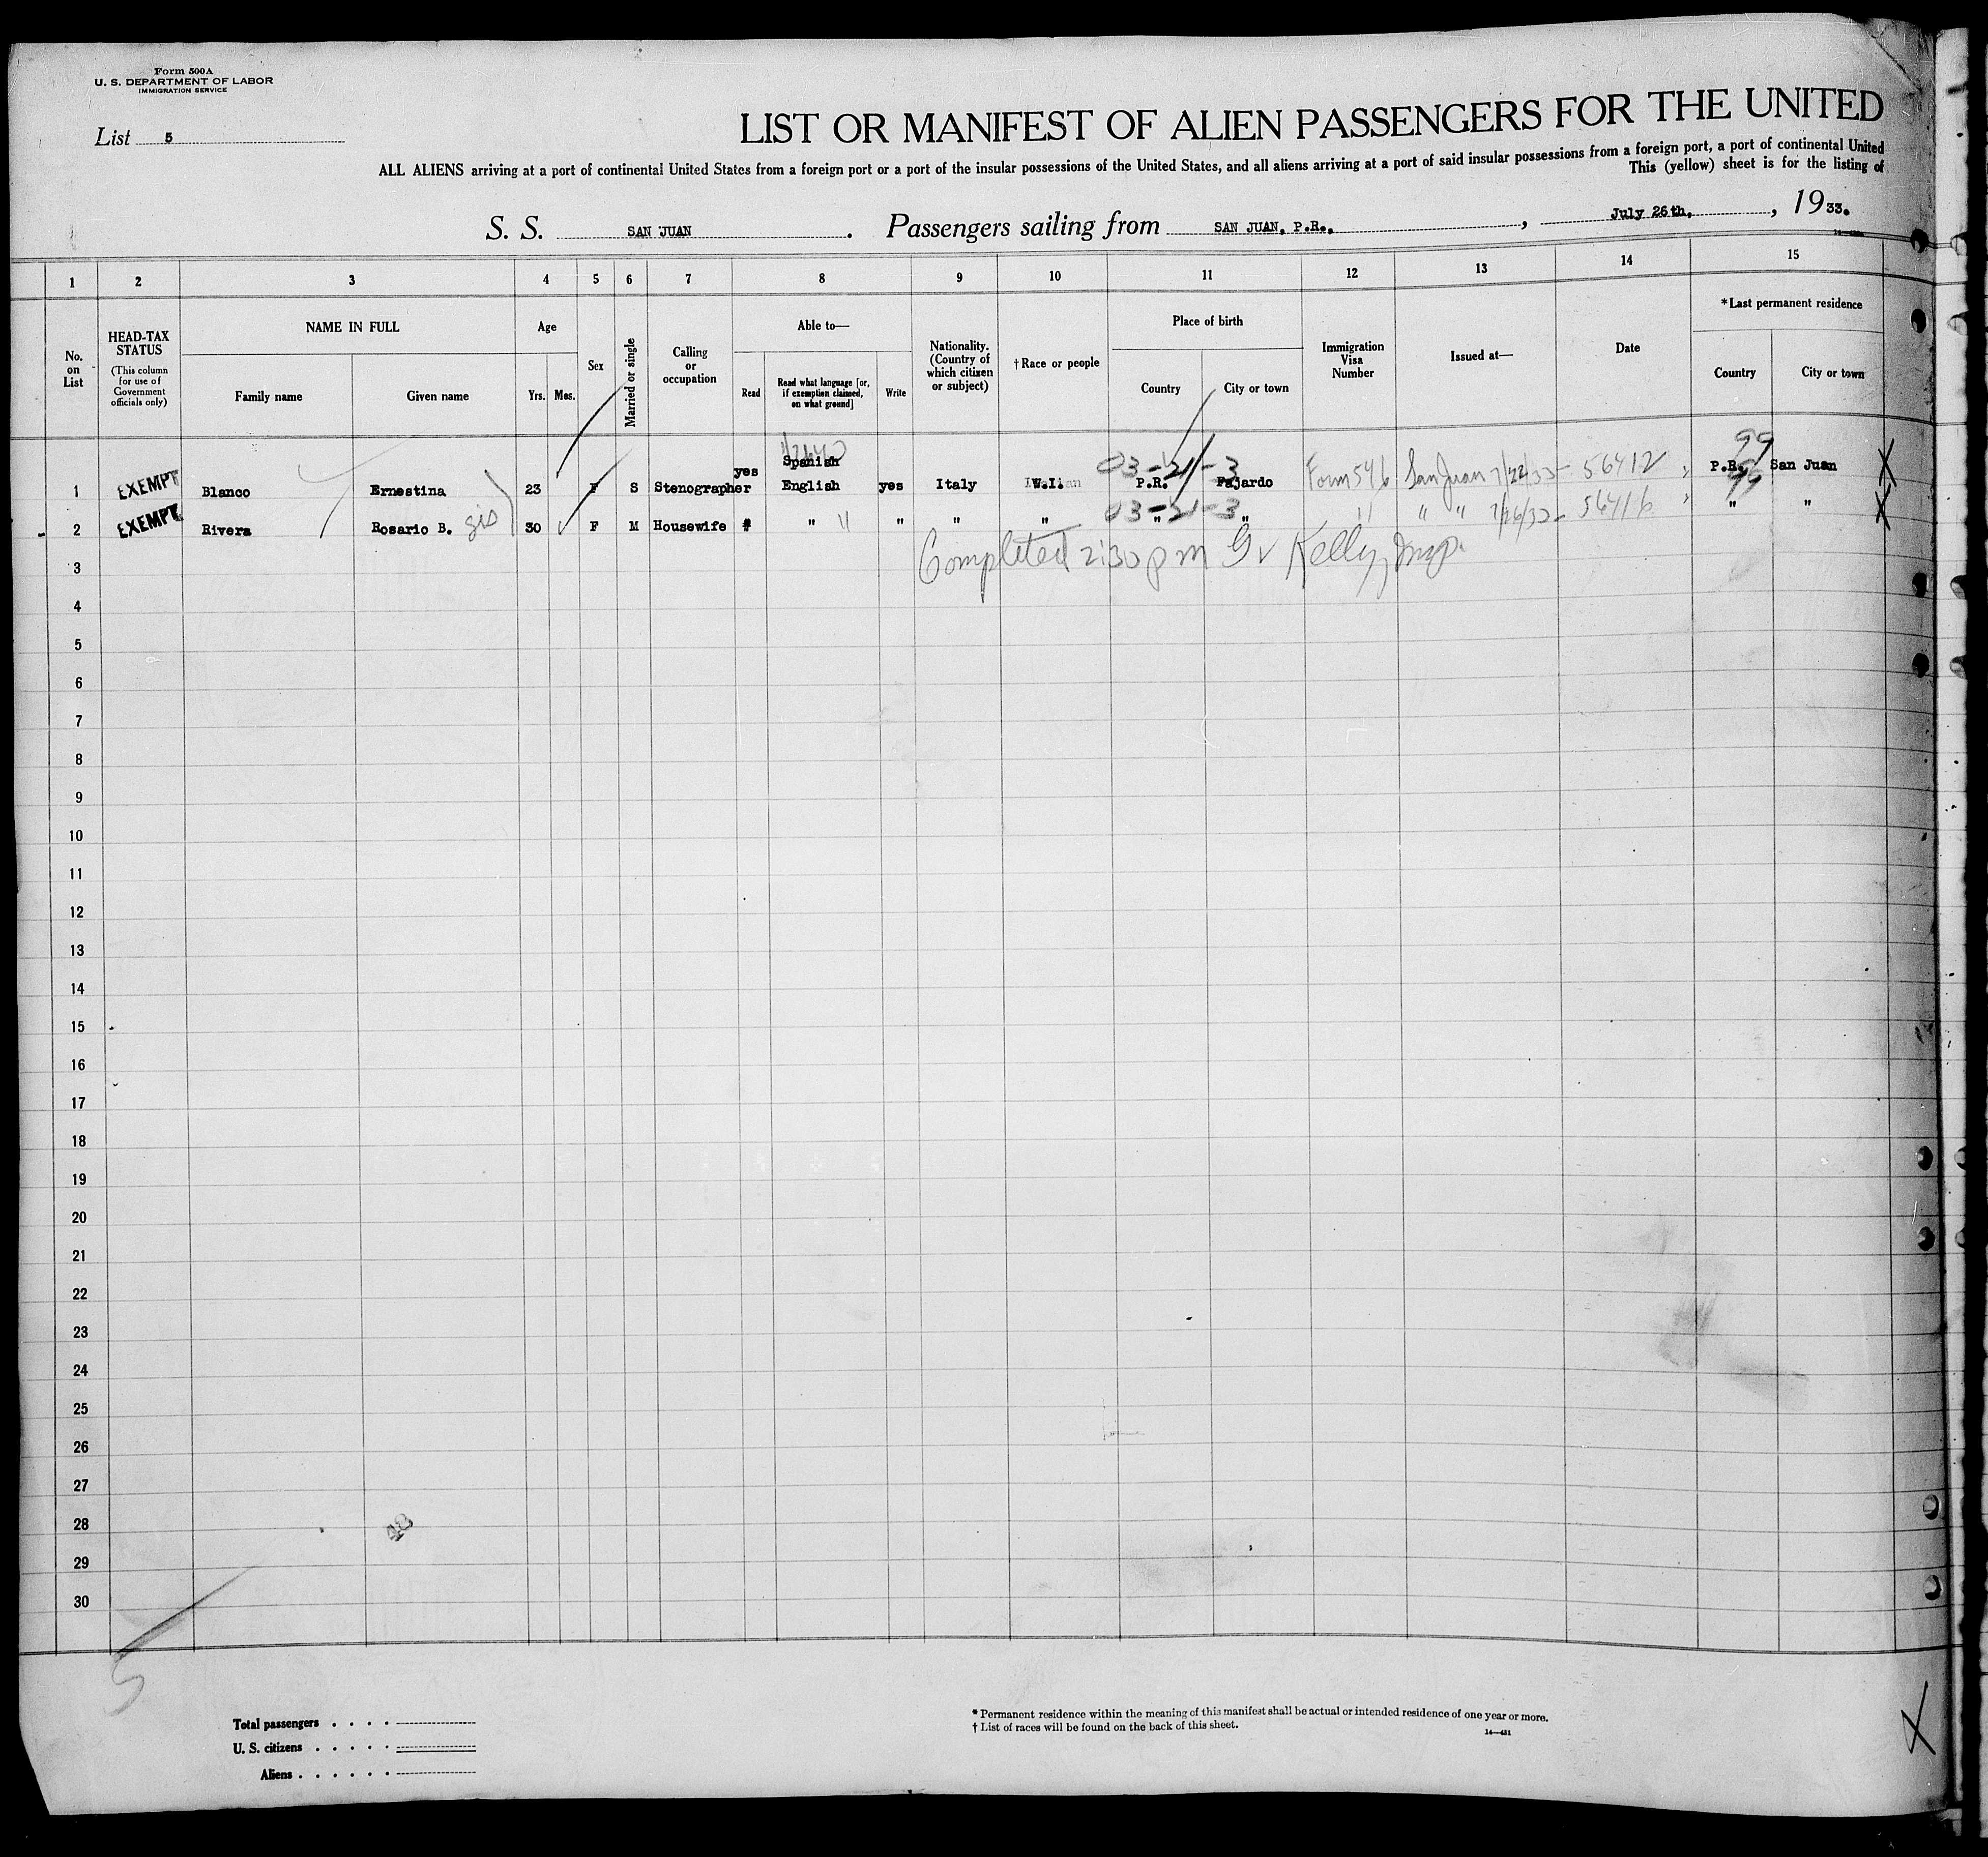 Form 500A
U. S. DEPARTMENT OF LABOR
IMMIGRATION SERVICE
List 5
LIST OR MANIFEST OF ALIEN PASSENGERS FOR THE UNITED
ALL ALIENS arriving at a port of continental United States from a foreign port or a port of the insular possessions of the United States, and all aliens arriving at a port of said insular possessions from a foreign port, a port of continental United
This (yellow) sheet is for the listing of
S. S. SAN JUAN . Passengers sailing from SAN JUAN, P.R., , July 26th, , 1933.
1 2 3 4 5 6 7 8 9 10 11 12 13 14 15
No. on List
HEAD-TAX STATUS
(This column for use of Government officials only)
NAME IN FULL
Family name Given name
Age
Yrs. Mos.
Sex
Married or single
Calling or occupation
Able to—
Read
Read what language [or, if exemption claimed, on what ground]
Write
Nationality. (Country of which citizen or subject)
†Race or people
Place of birth
Country City or town
Immigration Visa Number
Issued at—
Date
*Last permanent residence
Country City or town
03-21-3 99
yes Spanish
1 EXEMPT Blanco Ernestina 23 F S Stenographer English yes Italy W.I. P.R. Fajardo Form 546 San Juan 7/22/33- 56412 P.R. San Juan
03-21-3 99
2 EXEMPT Rivera Rosario B. 30 F M Housewife " " " " " " " " " " 56416 " "
Completed 2:30 pm G v Kelly, Insp.
3
4
5
6
7
8
9
10
11
12
13
14
15
16
17
18
19
20
21
22
23
24
25
26
27
28
48
29
30
5
Total passengers . . . .
U. S. citizens . . . . .
Aliens . . . . . .
* Permanent residence within the meaning of this manifest shall be actual or intended residence of one year or more.
† List of races will be found on the back of this sheet.
14—431